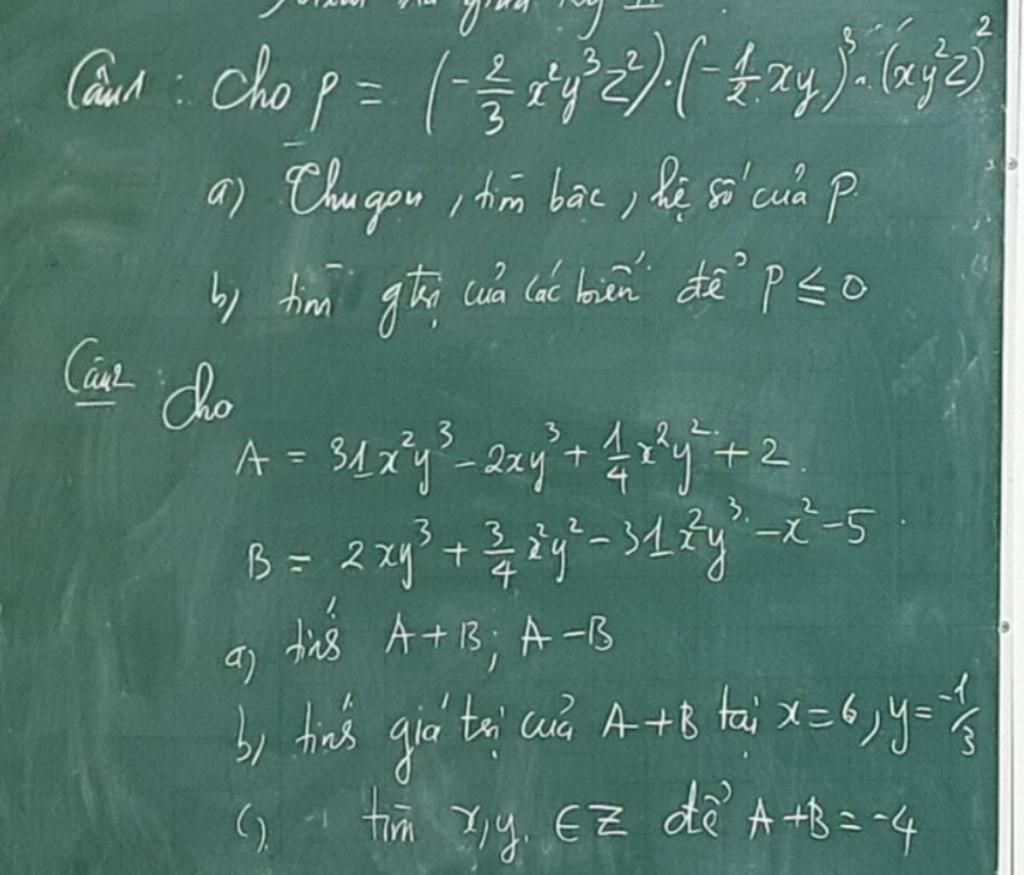 Câu1 : Cho P = (-2/3 x²y³z²).(-1/2 xy)³.(xy²z)²
a) Thu gọn, tìm bậc, hệ số của P.
b) tìm gtrị của các biến để P ≤ 0
Câu2 : Cho
A = 31x²y³ - 2xy³ + 1/4 x²y² + 2.
B = 2xy³ + 3/4 x²y² - 31x²y³ - x² - 5
a) tính A+B; A-B
b) tính giá trị của A+B tại x=6, y= -1/3
c). tìm x,y ∈ Z để A+B = -4